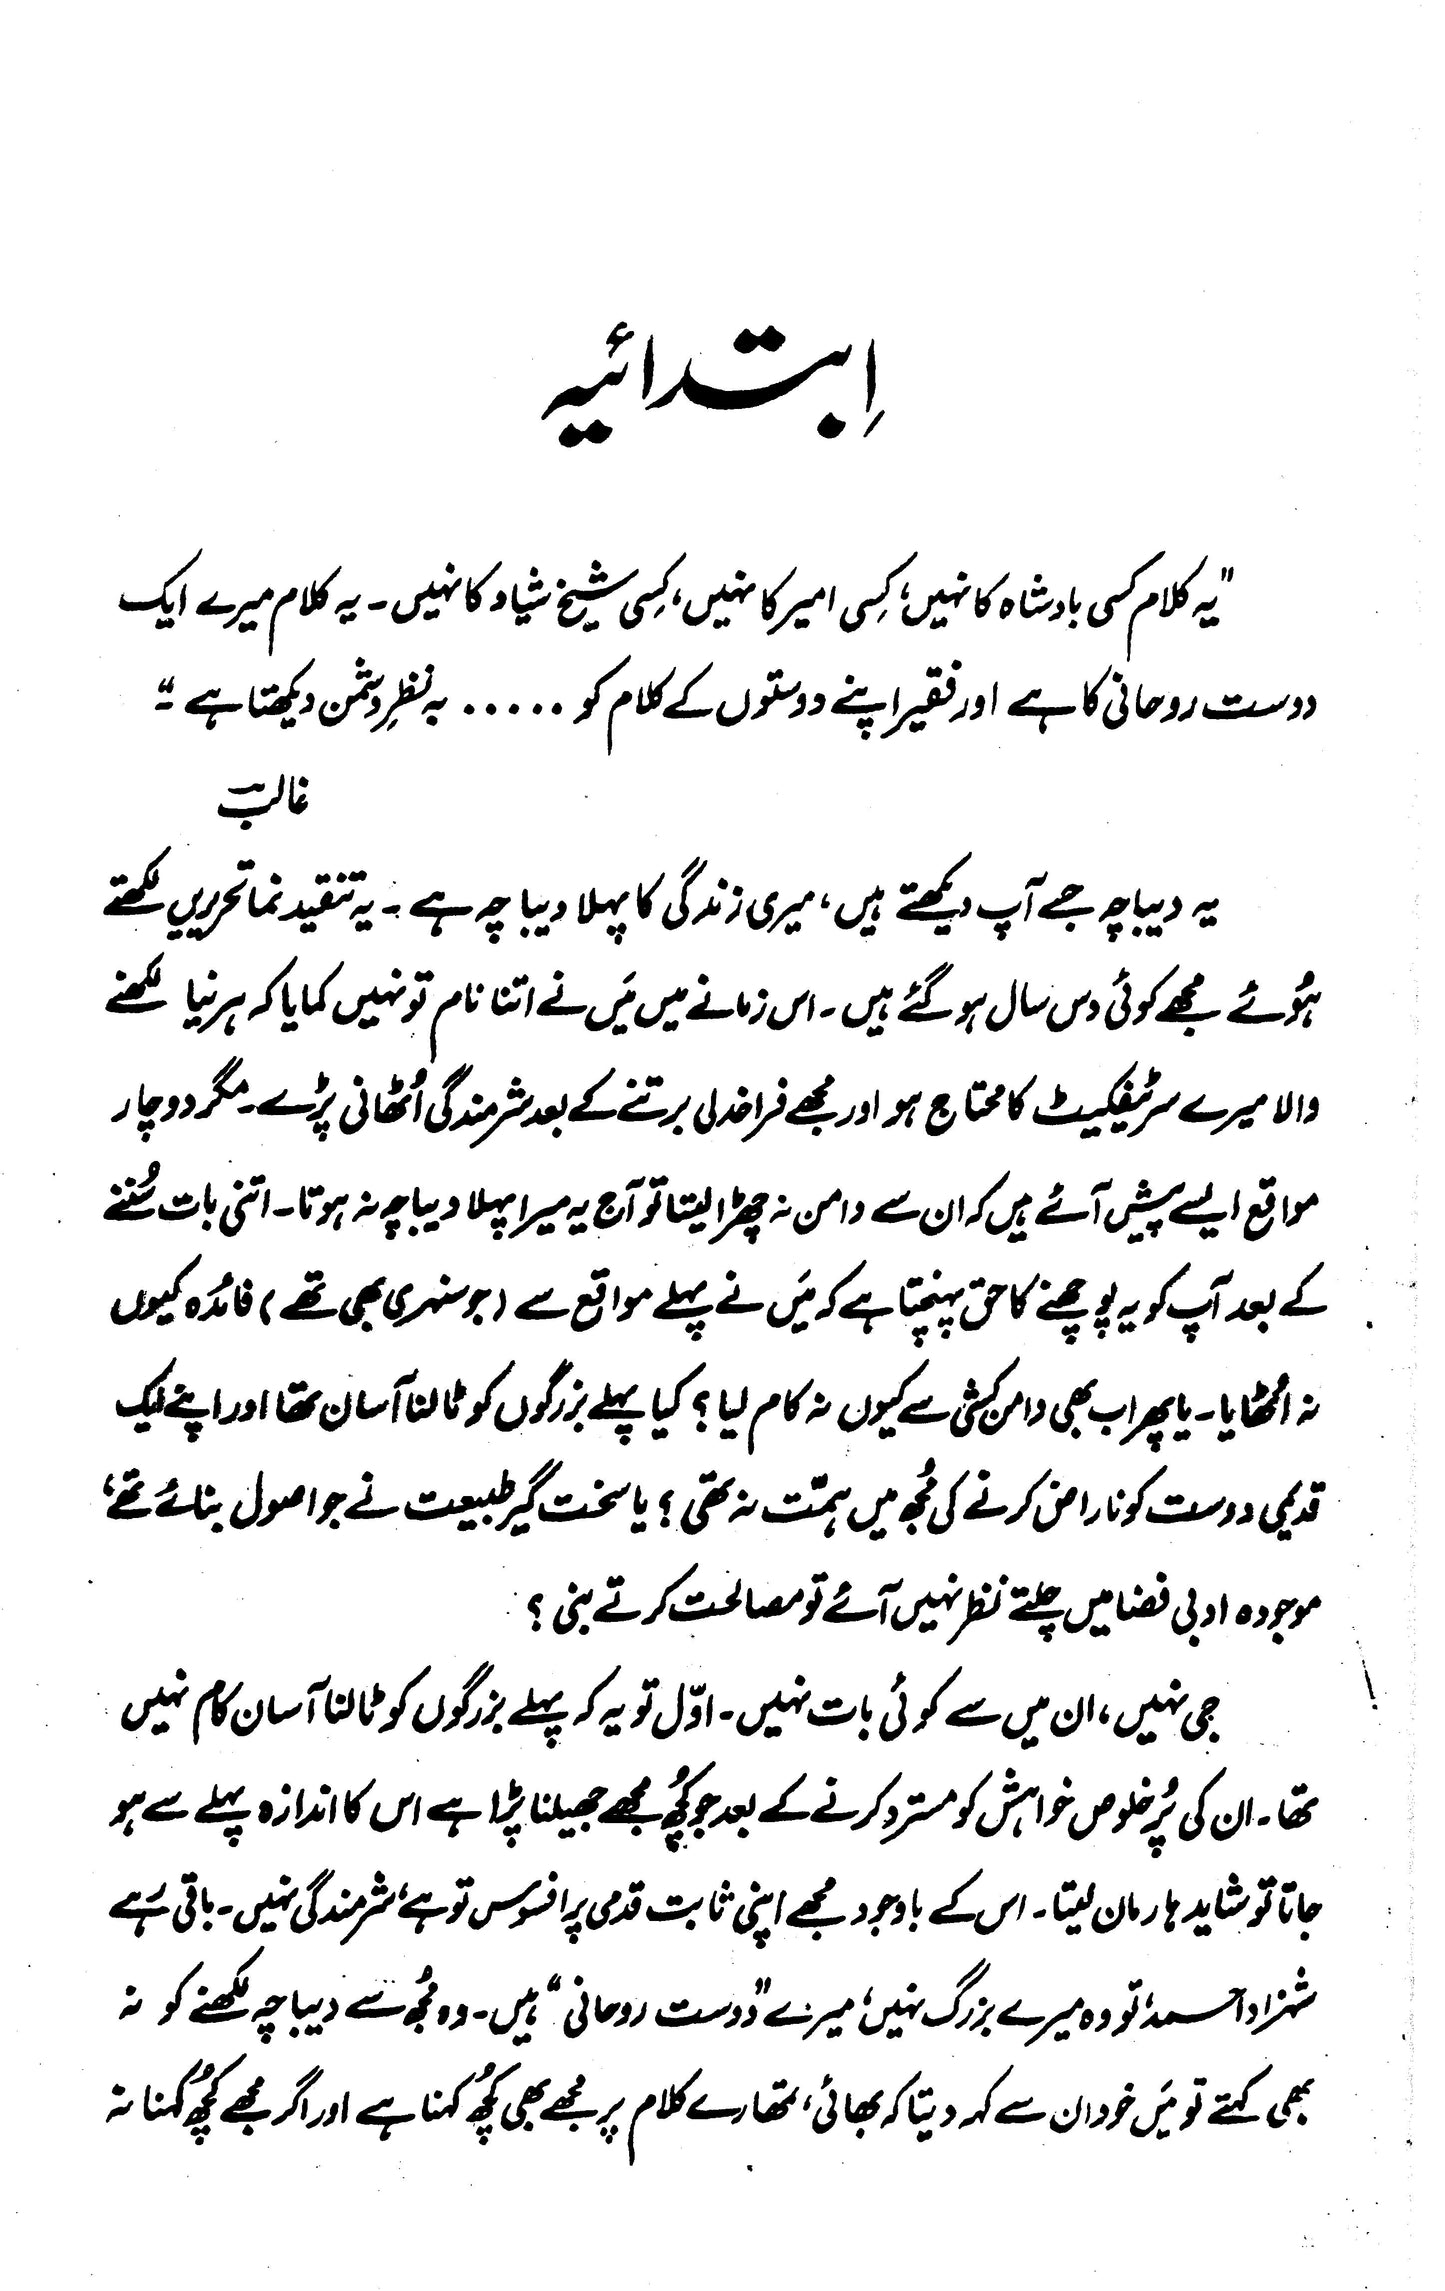 اِبتدائیہ
"یہ کلام کسی بادشاہ کا نہیں، کِسی امیر کا نہیں، کِسی شیخ شیاد کا نہیں۔ یہ کلام میرے ایک
دوست روحانی کا ہے اور فقیر اپنے دوستوں کے کلام کو ..... بہ نظرِ دشمن دیکھتا ہے۔"
غالب
یہ دیباچہ جسے آپ دیکھتے ہیں، میری زندگی کا پہلا دیباچہ ہے۔ یہ تنقید نما تحریریں لکھتے
ہُوئے مجھے کوئی دس سال ہو گئے ہیں۔ اس زمانے میں مَیں نے اتنا نام تو نہیں کمایا کہ ہر نیا لکھنے
والا میرے سرٹیفکیٹ کا محتاج ہو اور مجھے فراخدلی برتنے کے بعد شرمندگی اُٹھانی پڑے۔ مگر دو چار
مواقع ایسے پیش آئے ہیں کہ ان سے دامن نہ چھڑا لیتا تو آج یہ میرا پہلا دیباچہ نہ ہوتا۔ اتنی بات سُننے
کے بعد آپ کو یہ پوچھنے کا حق پہنچتا ہے کہ مَیں نے پہلے مواقع سے (جو سنہری بھی تھے) فائدہ کیوں
نہ اُٹھایا۔ یا پھر اب بھی دامن کشی سے کیوں نہ کام لیا؟ کیا پہلے بزرگوں کو ٹالنا آسان تھا اور اپنے ایک
قدیمی دوست کو ناراض کرنے کی مُجھ میں ہمّت نہ تھی؟ یا سخت گیر طبیعت نے جو اصول بنائے تھے،
موجودہ ادبی فضا میں چلتے نظر نہیں آئے تو مصالحت کرتے بنی؟
جی نہیں، ان میں سے کوئی بات نہیں۔ اوّل تو یہ کہ پہلے بزرگوں کو ٹالنا آسان کام نہیں
تھا۔ ان کی پُر خلوص خواہش کو مسترد کرنے کے بعد جو کچُھ مجھے جھیلنا پڑا ہے اس کا اندازہ پہلے سے ہو
جاتا تو شاید ہار مان لیتا۔ اس کے باوجود مجھے اپنی ثابت قدمی پر افسوس تو ہے، شرمندگی نہیں۔ باقی رہے
شہزاد احمد، تو وہ میرے بزرگ نہیں، میرے "دوست روحانی" ہیں۔ وہ مُجھ سے دیباچہ لکھنے کو نہ
بھی کہتے تو مَیں خود ان سے کہہ دیتا کہ بھائی، تمھارے کلام پر مجھے بھی کچُھ کہنا ہے اور اگر مجھے کچُھ کہنا نہ